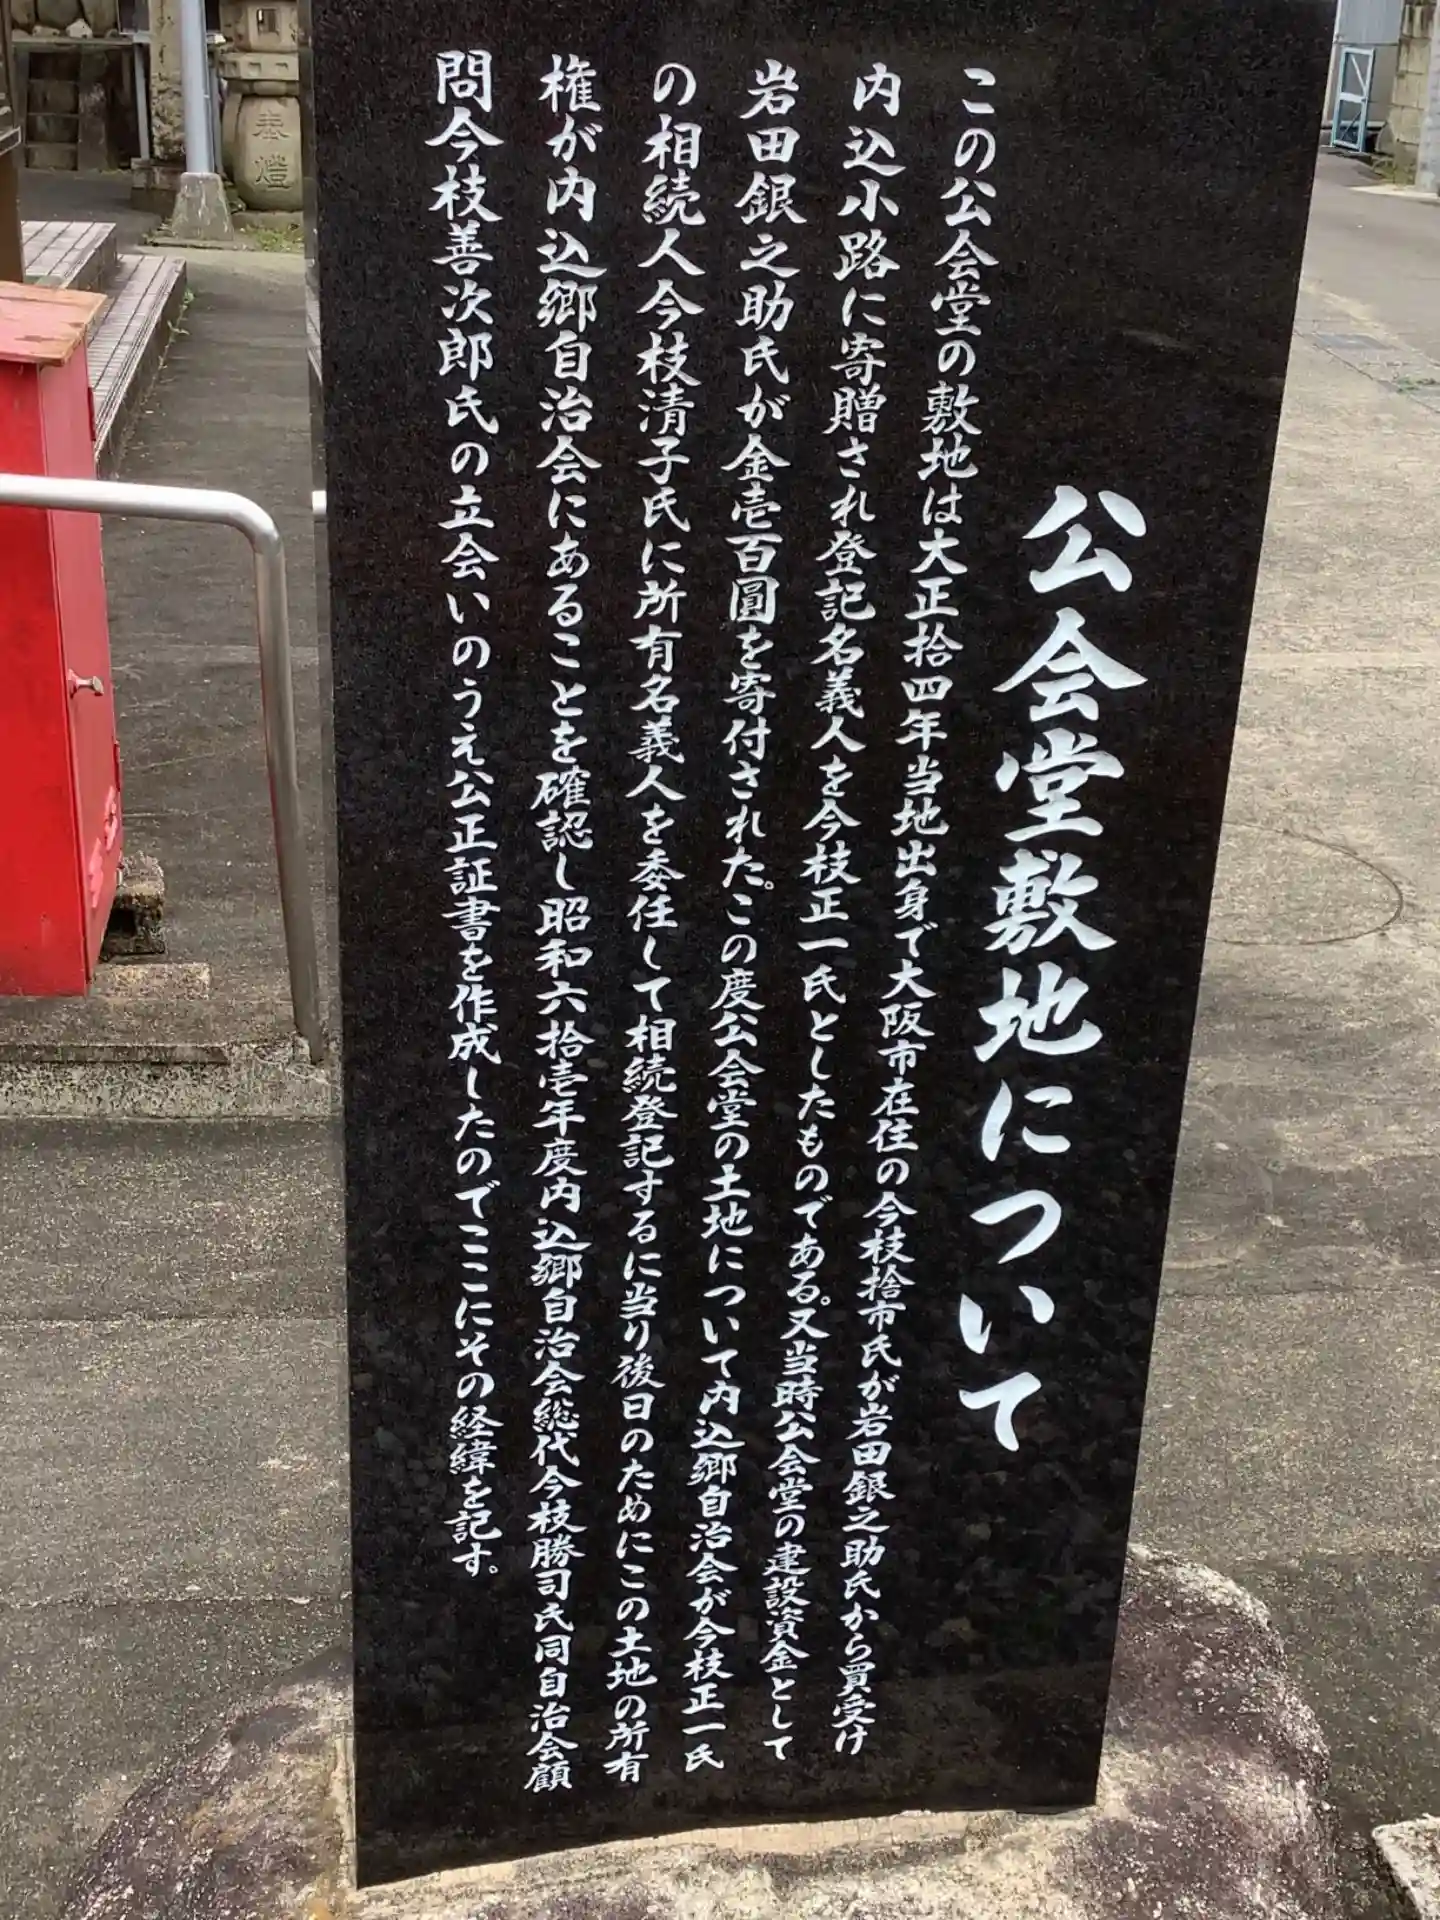 公会堂敷地について
この公会堂の敷地は大正拾四年当地出身で大阪市在住の今枝捨市氏が岩田銀之助氏から買受け
内込小路に寄贈され登記名義人を今枝正一氏としたものである。又当時公会堂の建設資金として
岩田銀之助氏が金壱百圓を寄付された。この度公会堂の土地について内込郷自治会が今枝正一氏
の相続人今枝清子氏に所有名義人を委任して相続登記するに当り後日のためにこの土地の所有
権が内込郷自治会にあることを確認し昭和六拾壱年度内込郷自治会総代今枝勝司氏同自治会顧
問今枝善次郎氏の立会いのうえ公正証書を作成したのでここにその経緯を記す。
奉燈